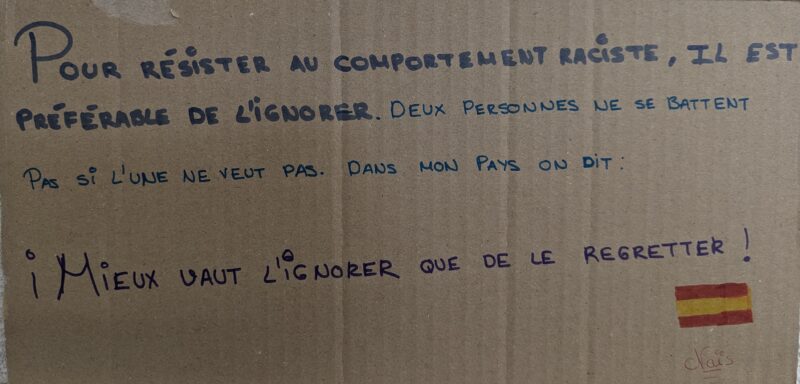 POUR RÉSISTER AU COMPORTEMENT RACISTE, IL EST
PRÉFÉRABLE DE L'IGNORER. DEUX PERSONNES NE SE BATTENT
PAS SI L'UNE NE VEUT PAS. DANS MON PAYS ON DIT :
¡ MIEUX VAUT L'IGNORER QUE DE LE REGRETTER !